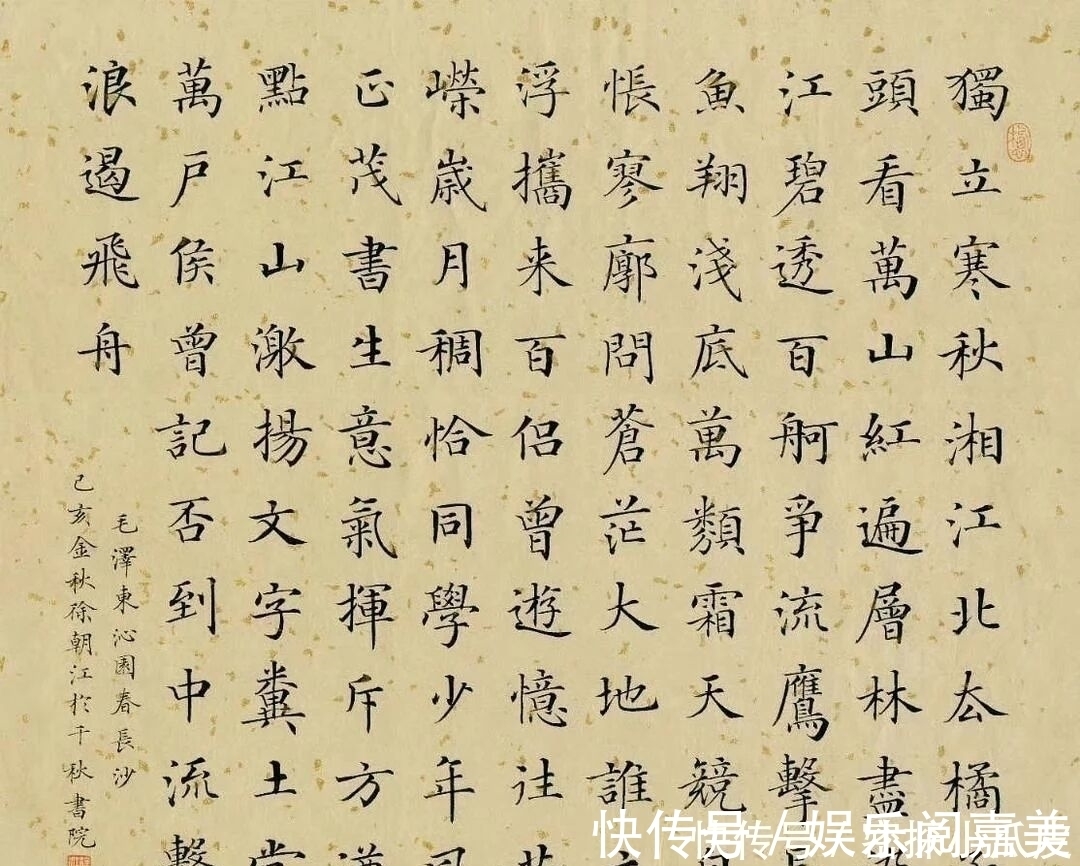 獨立寒秋湘江北去橘
頭看萬山紅遍層林盡
江碧透百舸爭流鷹擊
魚翔淺底萬類霜天競
悵寥廓問蒼茫大地誰
浮攜来百侣曾遊憶往
嶸歲月稠恰同學少年
正茂書生意氣揮斥方
點江山激揚文字糞土當
萬户侯曾記否到中流擊
浪遏飛舟
毛澤東沁園春長沙
己亥金秋徐朝江於千秋書院
快传号 / 娱乐阁嘉善